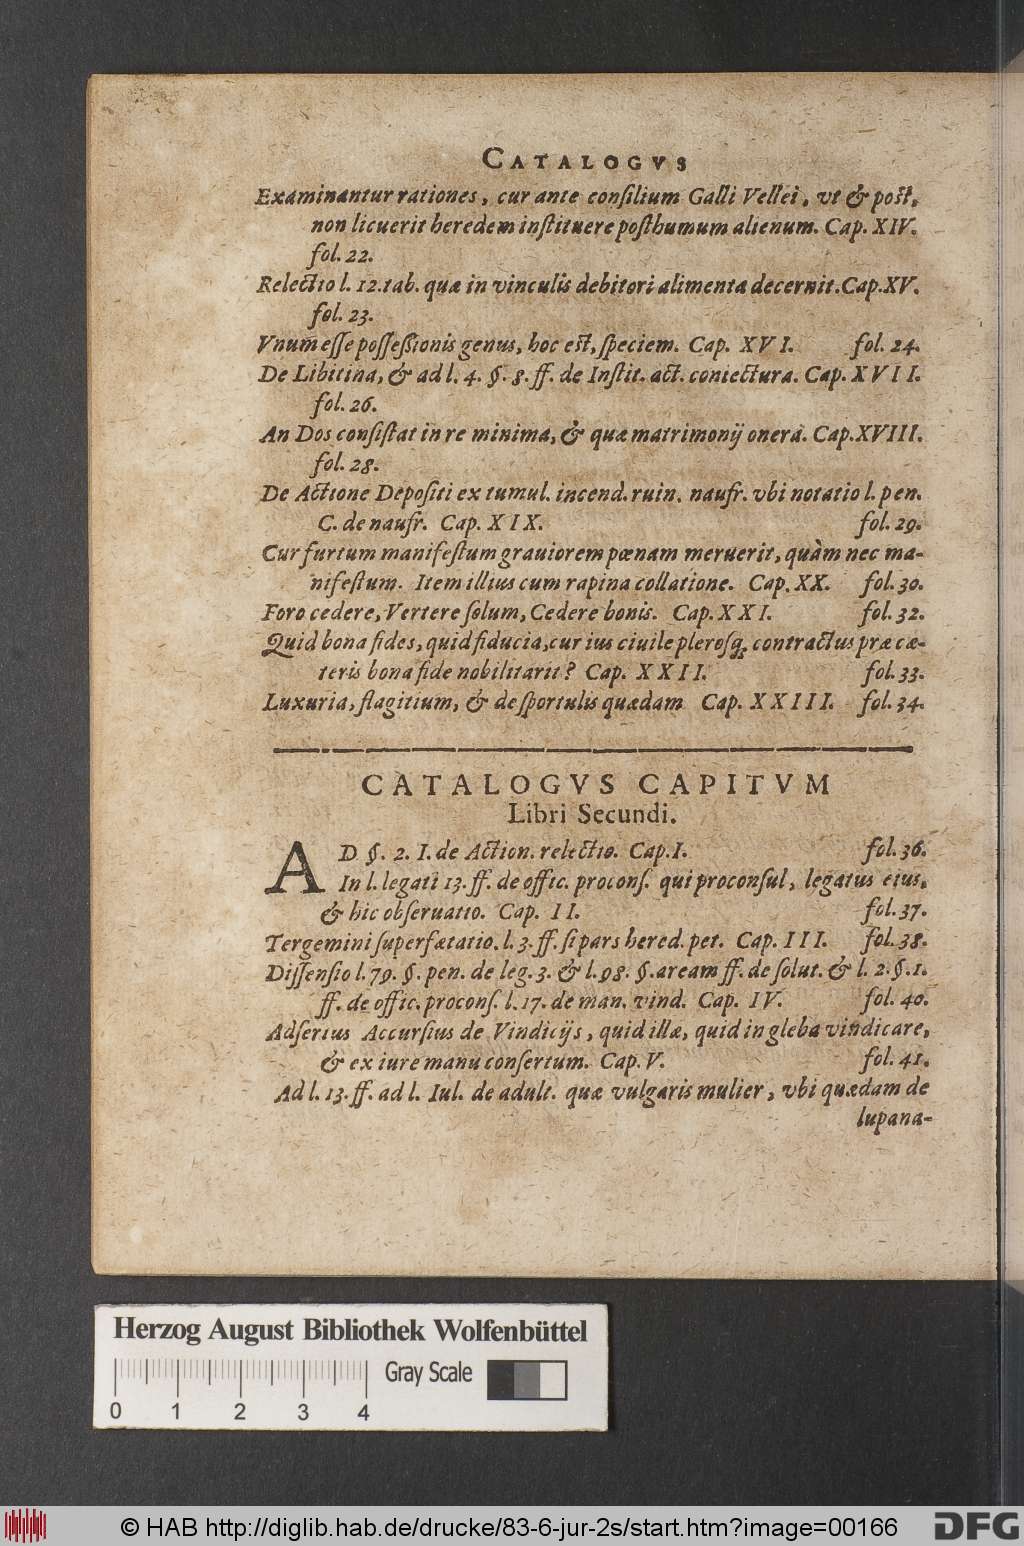 CATALOGVS
Examinantur rationes, cur ante consilium Galli Vellei, vt & post,
non licuerit heredem instituere posthumum alienum. Cap. XIV.
fol. 22.
Relectio l. 12. tab. quæ in vinculis debitori alimenta decernit. Cap. XV.
fol. 23.
Vnum esse possessionis genus, hoc est, speciem. Cap. XVI. fol. 24.
De Libitina, & ad l. 4. §. 8. ff. de Instit. act. coniectura. Cap. XVII.
fol. 26.
An Dos consistat in re minima, & quæ matrimonij onera. Cap. XVIII.
fol. 28.
De Actione Depositi ex tumul. incend. ruin. naufr. vbi notatio l. pen.
C. de naufr. Cap. XIX. fol. 29.
Cur furtum manifestum grauiorem pœnam meruerit, quàm nec ma-
nifestum. Item illius cum rapina collatione. Cap. XX. fol. 30.
Foro cedere, Vertere solum, Cedere bonis. Cap. XXI. fol. 32.
Quid bona fides, quid fiducia, cur ius ciuile plerosq; contractus præ cæ-
teris bona fide nobilitarit? Cap. XXII. fol. 33.
Luxuria, flagitium, & de sportulis quædam Cap. XXIII. fol. 34.
CATALOGVS CAPITVM
Libri Secundi.
AD §. 2. I. de Action. relectio. Cap. I. fol. 36.
In l. legati 13. ff. de offic. procons. qui proconsul, legatus eius,
& hic obseruatio. Cap. II. fol. 37.
Tergemini superfætatio. l. 3. ff. si pars hered. pet. Cap. III. fol. 38.
Dissensio l. 79. §. pen. de leg. 3. & l. 98. §. aream ff. de solut. & l. 2. §. 1.
ff. de offic. procons. l. 17. de man. vind. Cap. IV. fol. 40.
Adserius Accursius de Vindicijs, quid illæ, quid in gleba vindicare,
& ex iure manu consertum. Cap. V. fol. 41.
Ad l. 13. ff. ad l. Iul. de adult. quæ vulgaris mulier, vbi quædam de
lupana-
Herzog August Bibliothek Wolfenbüttel
Gray Scale
0 1 2 3 4
© HAB http://diglib.hab.de/drucke/83-6-jur-2s/start.htm?image=00166
DFG